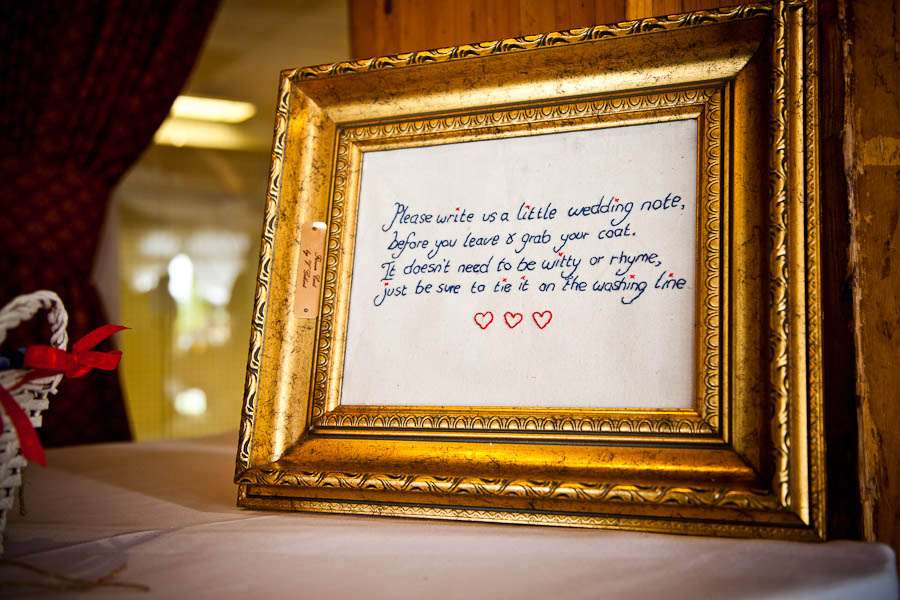 Please write us a little wedding note,
before you leave & grab your coat.
It doesn't need to be witty or rhyme,
just be sure to tie it on the washing line